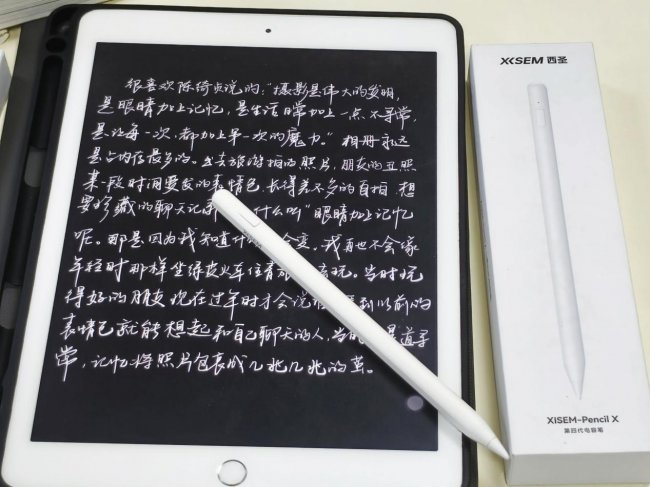 很喜欢陈绮贞说的："摄影是伟大的发明，
是眼睛加上记忆，是生活日常加上一点不寻常，
是让每一次，都加上第一次的魔力。"相册永远
是占内存最多的。出去旅游拍的照片，朋友的丑照
某一段时间要发的表情包，长得差不多的自拍，想
要珍藏的聊天记录 什么叫"眼睛加上记忆
呢。那是因为我知道什 会变，我再也不会像
年轻时那样坐绿皮火车住青旅 玩。当时玩
得好的朋友现在过年时才会说 到以前的
表情包就能想起和自己聊天的人，当时 是道寻
常，记忆将照片包裹成几兆几兆的茧。
XISEM 西圣
XISEM-Pencil X
第四代电容笔